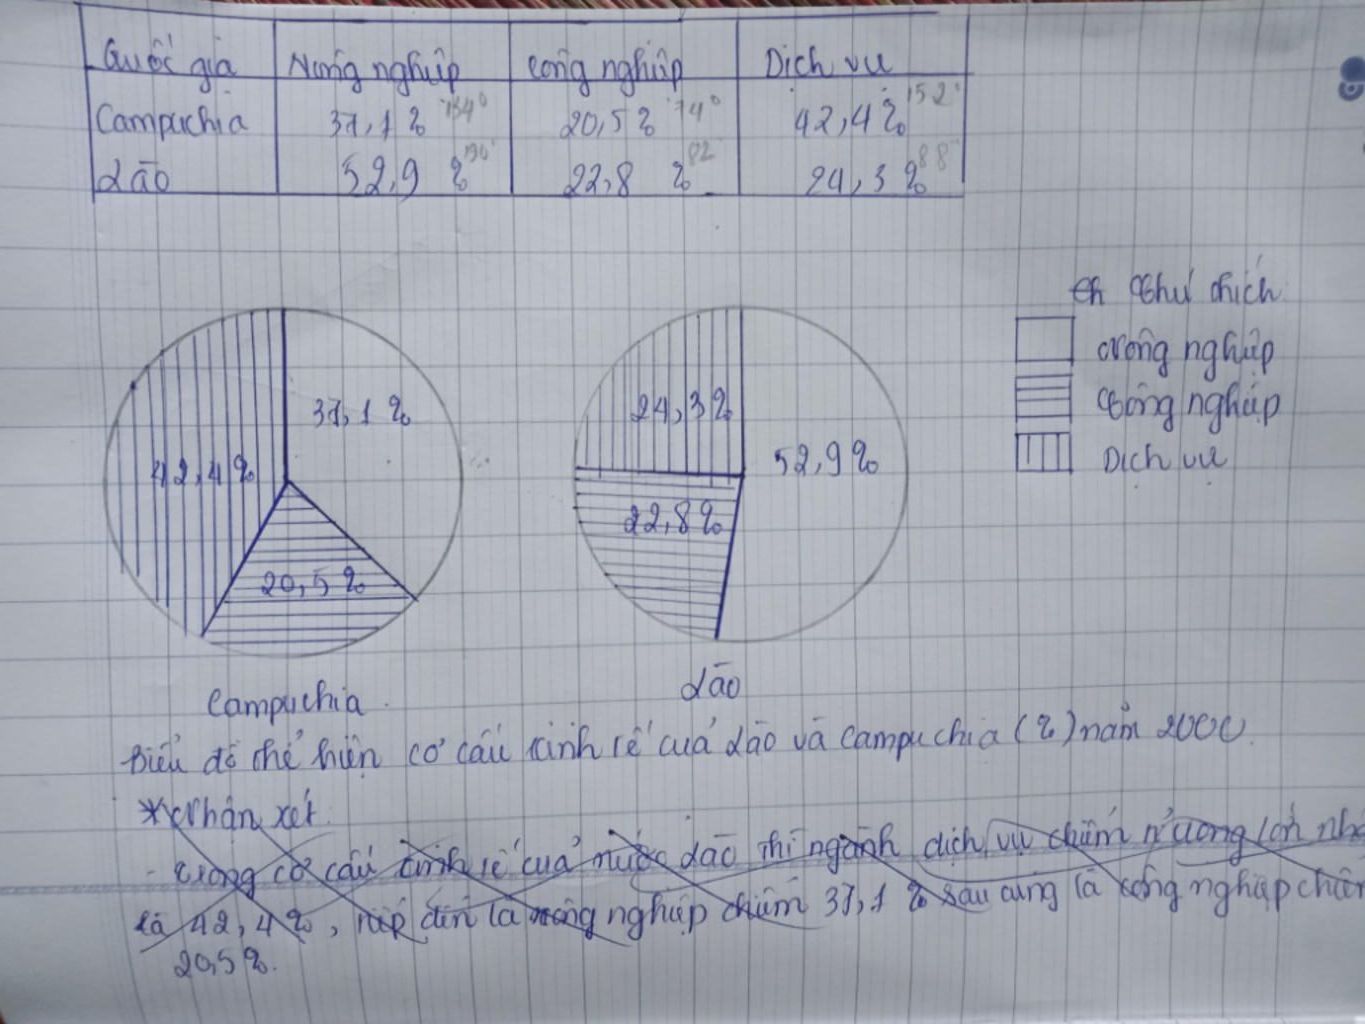 Quốc gia Nông nghiệp Công nghiệp Dịch vụ
Campuchia 37,1% 134° 20,5% 74° 42,4% 152°
Lào 52,9% 190 22,8% 82 24,3% 88
Chú thích
Nông nghiệp
Công nghiệp
Dịch vụ
37,1%
42,4%
20,5%
24,3%
52,9%
22,8%
Campuchia
Lào
Biểu đồ thể hiện cơ cấu kinh tế của Lào và Campuchia (%) năm 2000.
* Nhận xét.
- Trong cơ cấu kinh tế của nước Lào thì ngành dịch vụ chiếm
là 42,4%, tiếp đến là nông nghiệp chiếm 37,1% sau cùng là công nghiệp
20,5%.